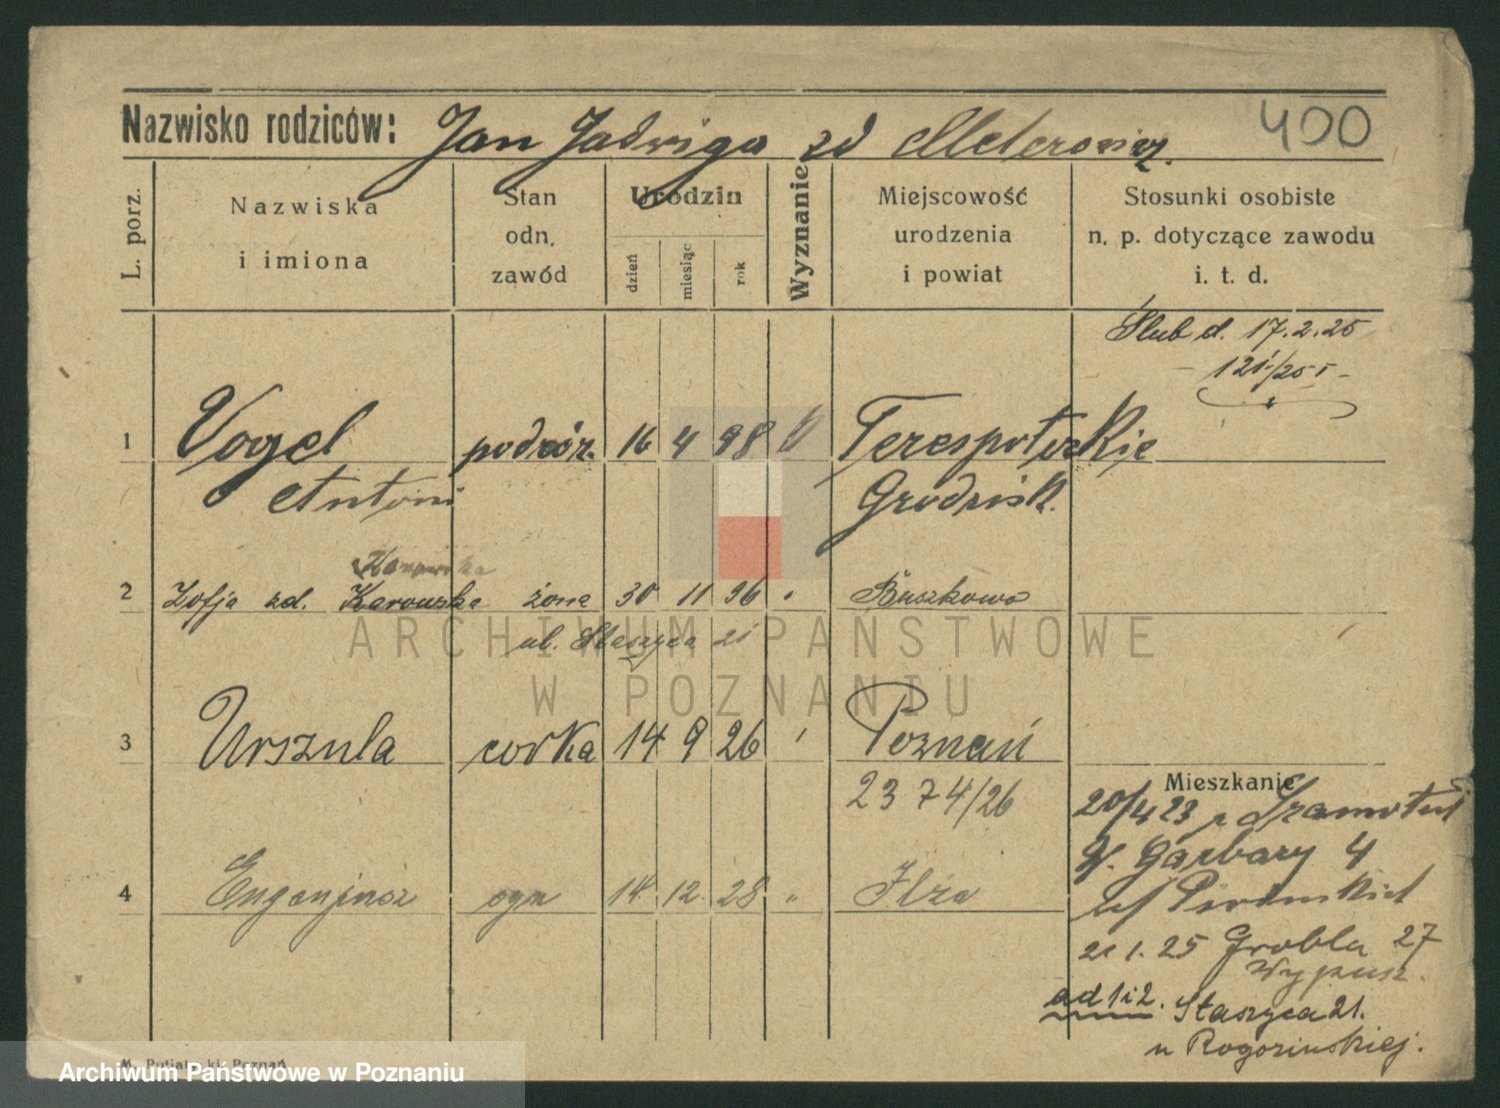 400
Nazwisko rodziców: Jan Jadwiga zd
L. porz.
Nazwiska i imiona
Stan odn. zawód
Urodzin
dzień miesiąc rok
Wyznanie
Miejscowość urodzenia i powiat
Stosunki osobiste n. p. dotyczące zawodu i. t. d.
Ślub d. 17.2.25
121/25 I
1 Vogel podróż. 16 4 98 K Terespotockie
Antoni Grodzisk.
2 Zofja zd. Karouska żona 30 11 96 Buszkowo
ul. Staszyca 21
3 Urszula corka 14 9 26 Poznań
2374/26
Mieszkanie
20/4 23 z Szamotuł
W. Garbary 4
4 Eugenjusz syn 14 12 28 " Ilża
21 1. 25 Grobla 27
ad 1 i 2. Staszyca 21.
u Rogozinskiej.
ARCHIWUM PAŃSTWOWE
W POZNANIU
Archiwum Państwowe w Poznaniu